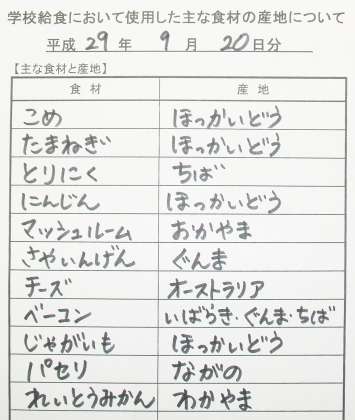 学校給食において使用した主な食材の産地について
平成 29 年 9 月 20 日分
【主な食材と産地】
食材 産地
こめ ほっかいどう
たまねぎ ほっかいどう
とりにく ちば
にんじん ほっかいどう
マッシュルーム おかやま
さやいんげん ぐんま
チーズ オーストラリア
ベーコン いばらき・ぐんま・ちば
じゃがいも ほっかいどう
パセリ ながの
れいとうみかん わかやま